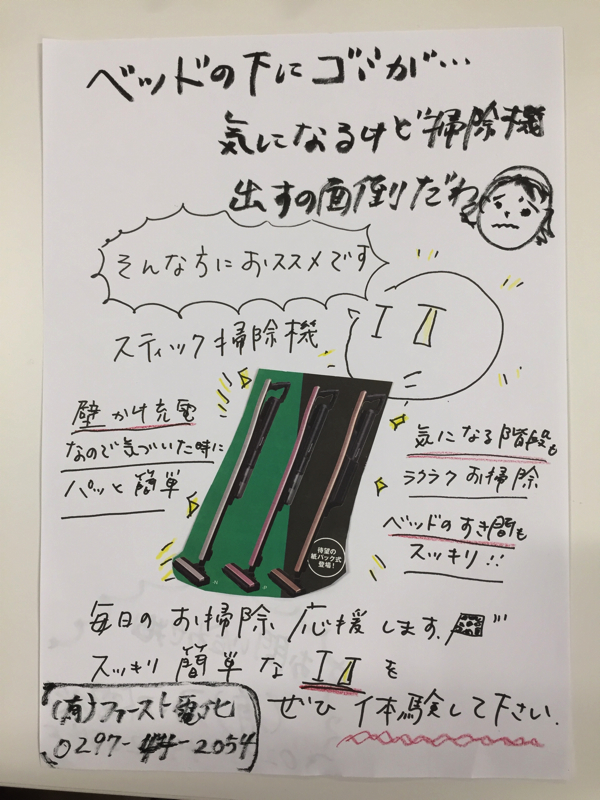 ベッドの下にゴミが…
気になるけど掃除機
出すの面倒だわ
そんな方におススメです
スティック掃除機
IT
壁かけ充電
なので気づいた時に
パッと簡単
気になる階段も
ラクラクお掃除
ベッドのすき間も
スッキリ!!
待望の
紙パック式
登場!
毎日のお掃除応援します.
スッキリ簡単なITを
ぜひ体験して下さい.
(有)ファースト電化
0297-44-2054